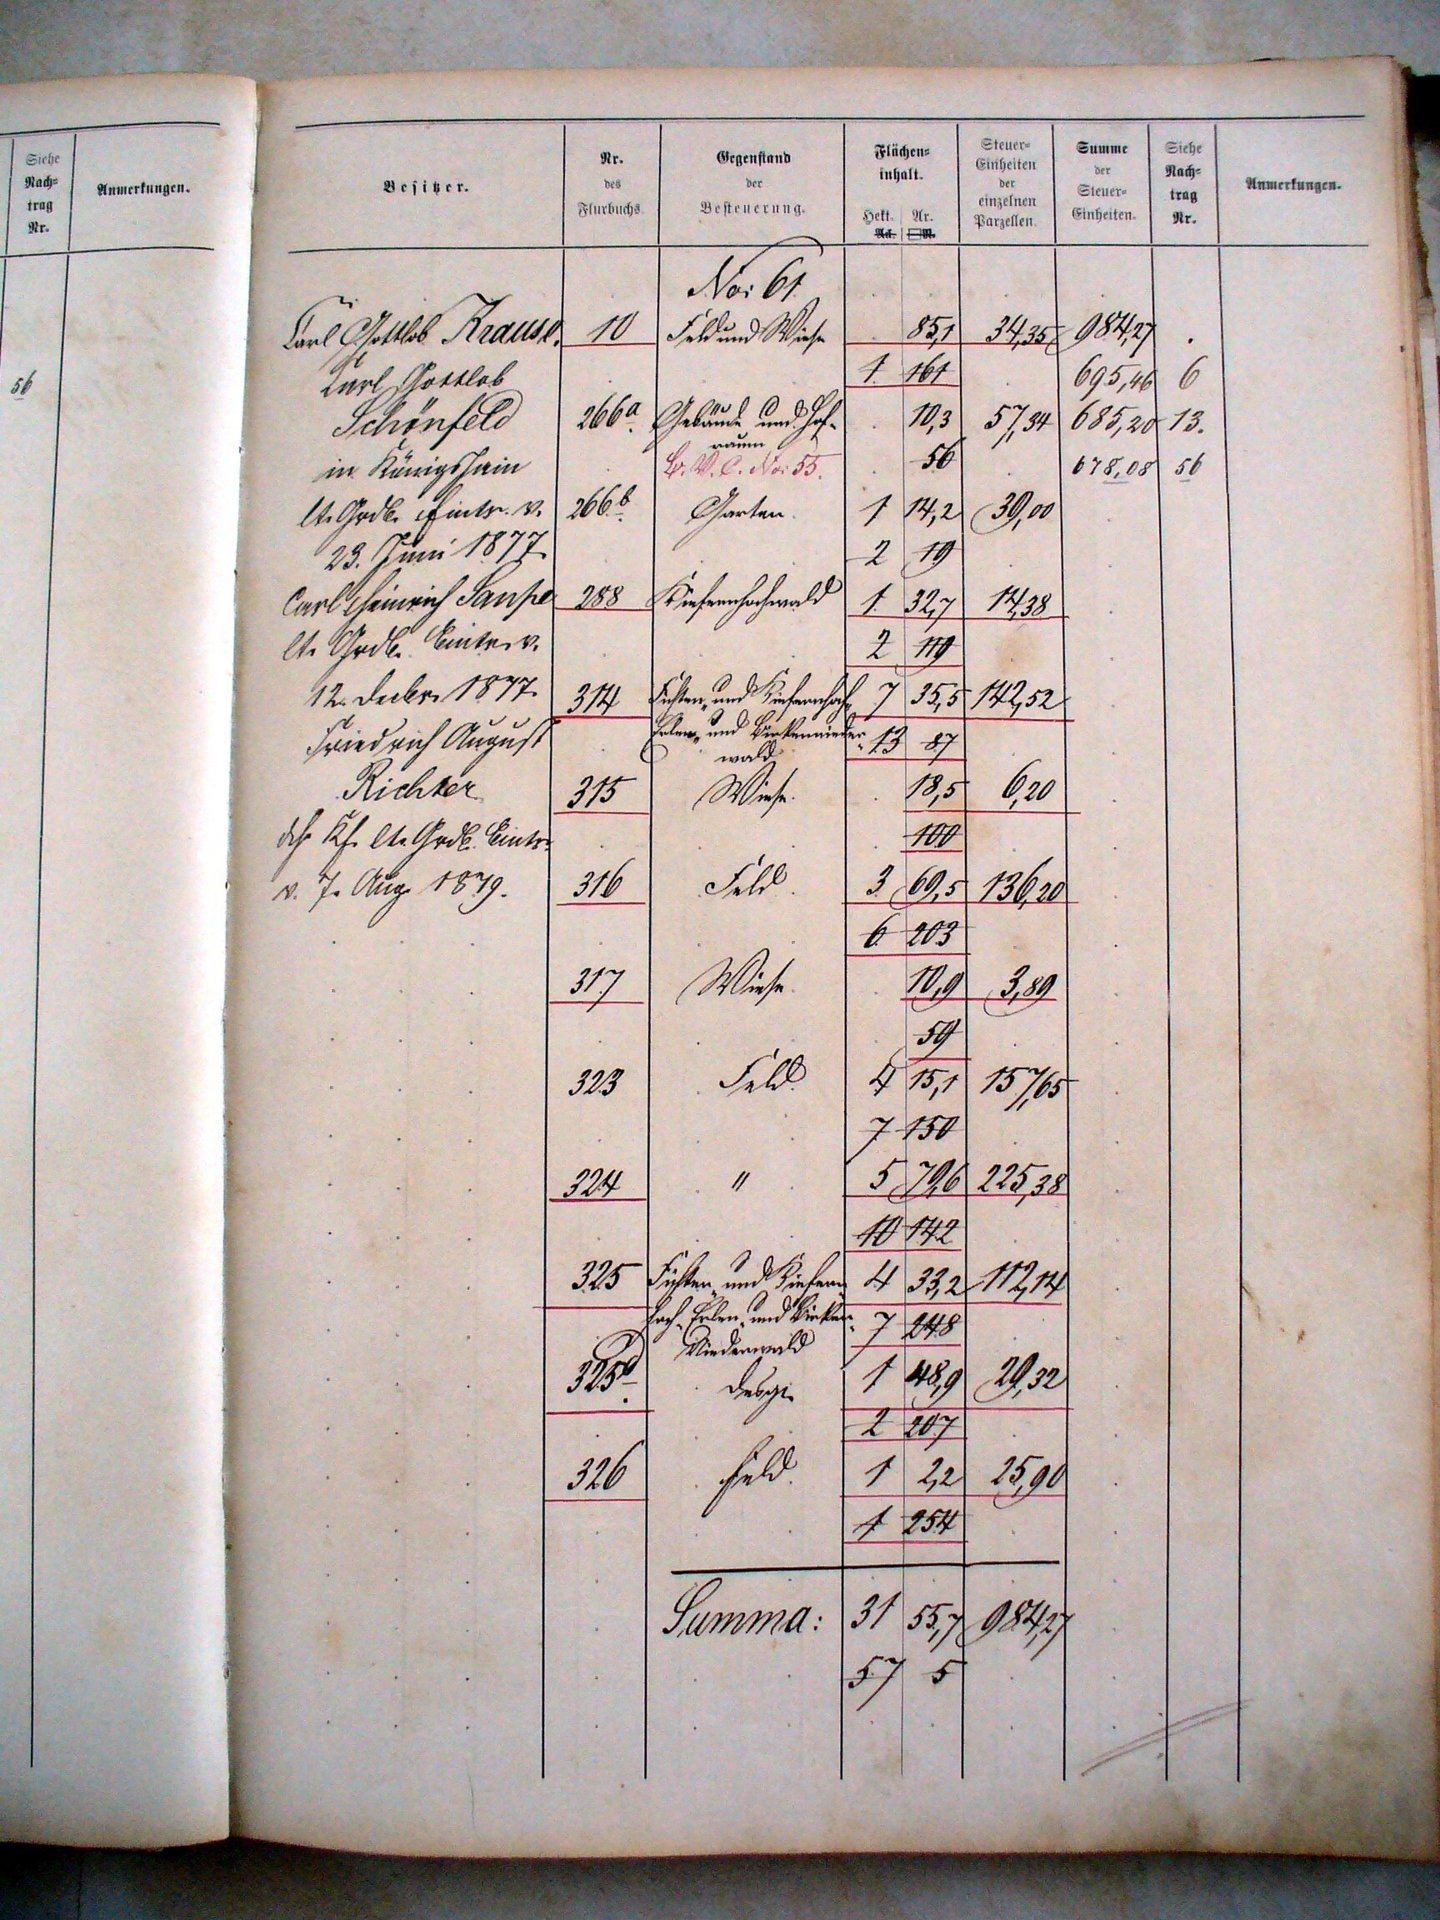 Siehe Nach= trag Nr.
Anmerkungen.
56
Besitzer.
Nr. des Flurbuchs.
Gegenstand der Besteuerung.
Flächen= inhalt.
Hekt. Ar.
Ack. □R.
Steuer= Einheiten der einzelnen Parzellen.
Summe der Steuer= Einheiten.
Siehe Nach= trag Nr.
Anmerkungen.
No: 61.
Carl Gottlob Krause. 10 Feld und Wiese 85,1 34,35 984,27
Karl Gottlob 1. 161 695,46 6
Schönfeld 266a. Gebäude und Hof= 10,3 57,34 685,20 13.
raum
in Königshain B.V.C. No: 55. 56 678,08 56
lt. Grdb. Eintr. v. 266b. Garten. 1 14,2 39,00
23. Juni 1877. 2 19
Carl Heinrich Saupe 288 Kiefernhochwald 1 32,7 14,38
lt. Grdb. Eintr. v. 2 119
12. Decbr. 1877. 314 Fichten- und Kiefernhoch- 7 35,5 142,52
Friedrich August Erlen- und Birkennieder- 13 87
wald
Richter 315 Wiese. 18,5 6,20
Kf. lt. Grdb. Eintr. 100
v. 7. Aug. 1879. 316 Feld. 3 69,5 136,20
6 203
317 Wiese. 10,9 3,89
59
323 Feld. 4 15,1 157,65
7 150
324 " 5 79,6 225,38
10 142
325 Fichten- und Kiefern- 4 33,2 112,14
hoch- Erlen- und Birken- 7 248
Niederwald
325d. desgl. 1 48,9 29,32
2 207
326 Feld. 1 2,2 25,90
1 254
Summa: 31 55,7 984,27
57 5